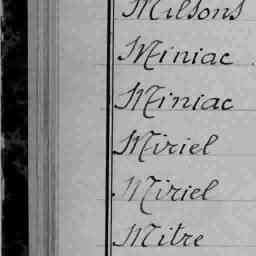 Milsons
Miniac
Miniac
Miriel
Miriel
Mitre